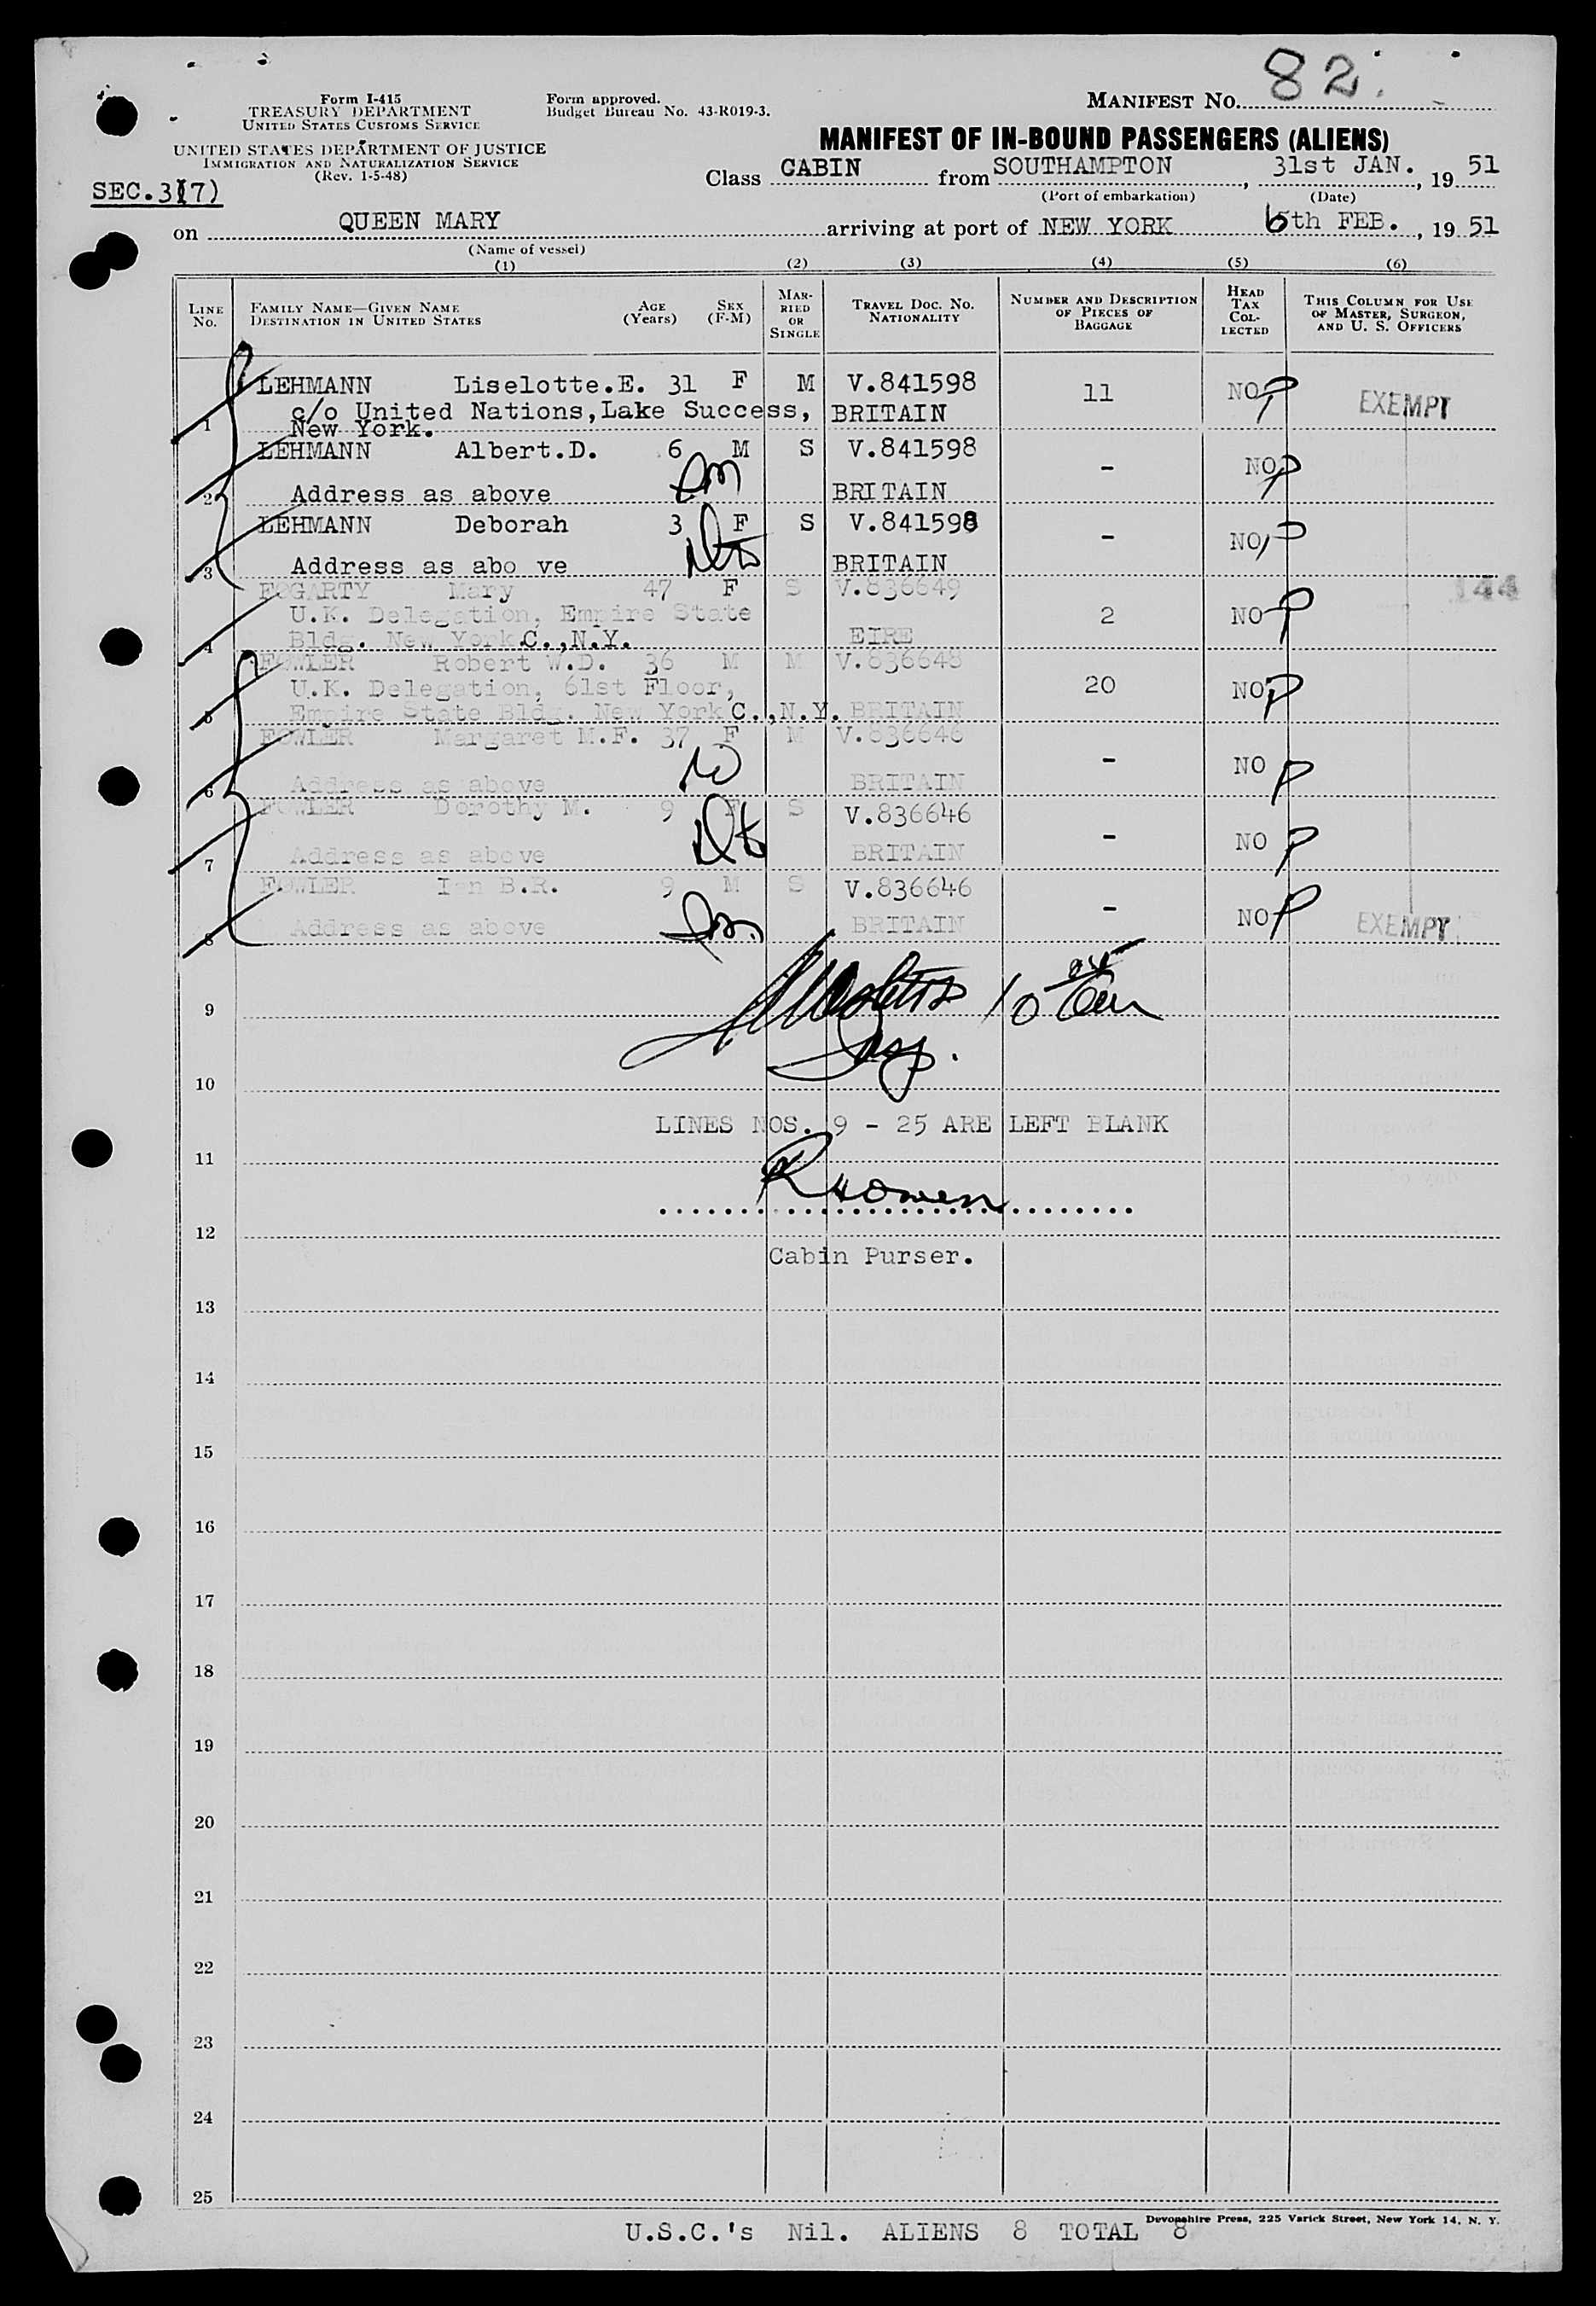 82.
Form I-415
TREASURY DEPARTMENT
UNITED STATES CUSTOMS SERVICE
UNITED STATES DEPARTMENT OF JUSTICE
IMMIGRATION AND NATURALIZATION SERVICE
(Rev. 1-5-48)
Form approved.
Budget Bureau No. 43-R019-3.
MANIFEST NO.
MANIFEST OF IN-BOUND PASSENGERS (ALIENS)
SEC.3(7)
Class CABIN from SOUTHAMPTON, 31st JAN., 19 51
(Port of embarkation) (Date)
on QUEEN MARY arriving at port of NEW YORK 6th FEB., 19 51
(Name of vessel)
(1) (2) (3) (4) (5) (6)
LINE No. FAMILY NAME—GIVEN NAME DESTINATION IN UNITED STATES AGE (Years) SEX (F-M) MARRIED OR SINGLE TRAVEL DOC. NO. NATIONALITY NUMBER AND DESCRIPTION OF PIECES OF BAGGAGE HEAD TAX COLLECTED THIS COLUMN FOR USE OF MASTER, SURGEON, AND U. S. OFFICERS
LEHMANN Liselotte.E. 31 F M V.841598 11 NO P EXEMPT
c/o United Nations,Lake Success, BRITAIN
1 New York.
LEHMANN Albert.D. 6 M S V.841598 - NO P
2 Address as above BRITAIN
LEHMANN Deborah 3 F S V.841598 - NO P
3 Address as abo ve BRITAIN
FOGARTY Mary 47 F S V.836649 144
U.K. Delegation, Empire State 2 NO P
4 Bldg. New York C.,N.Y. EIRE
FOWLER Robert W.D. 36 M M V.836648
U.K. Delegation, 61st Floor, 20 NO P
5 Empire State Bldg. New York C.,N.Y. BRITAIN
FOWLER Margaret M.F. 37 F M V.836646 - NO P
6 Address as above BRITAIN
FOWLER Dorothy M. 9 F S V.836646 - NO P
7 Address as above BRITAIN
FOWLER Ian B.R. 9 M S V.836646 - NO P
8 Address as above BRITAIN EXEMPT
9
Insp.
10
LINES NOS. 9 - 25 ARE LEFT BLANK
11
R H Owen
12
Cabin Purser.
13
14
15
16
17
18
19
20
21
22
23
24
25
Devonshire Press, 225 Varick Street, New York 14, N. Y.
U.S.C.'s Nil. ALIENS 8 TOTAL 8